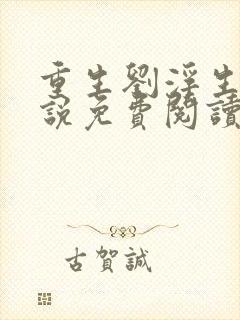 重生劉淫生
說免費閱讀
古賀誠